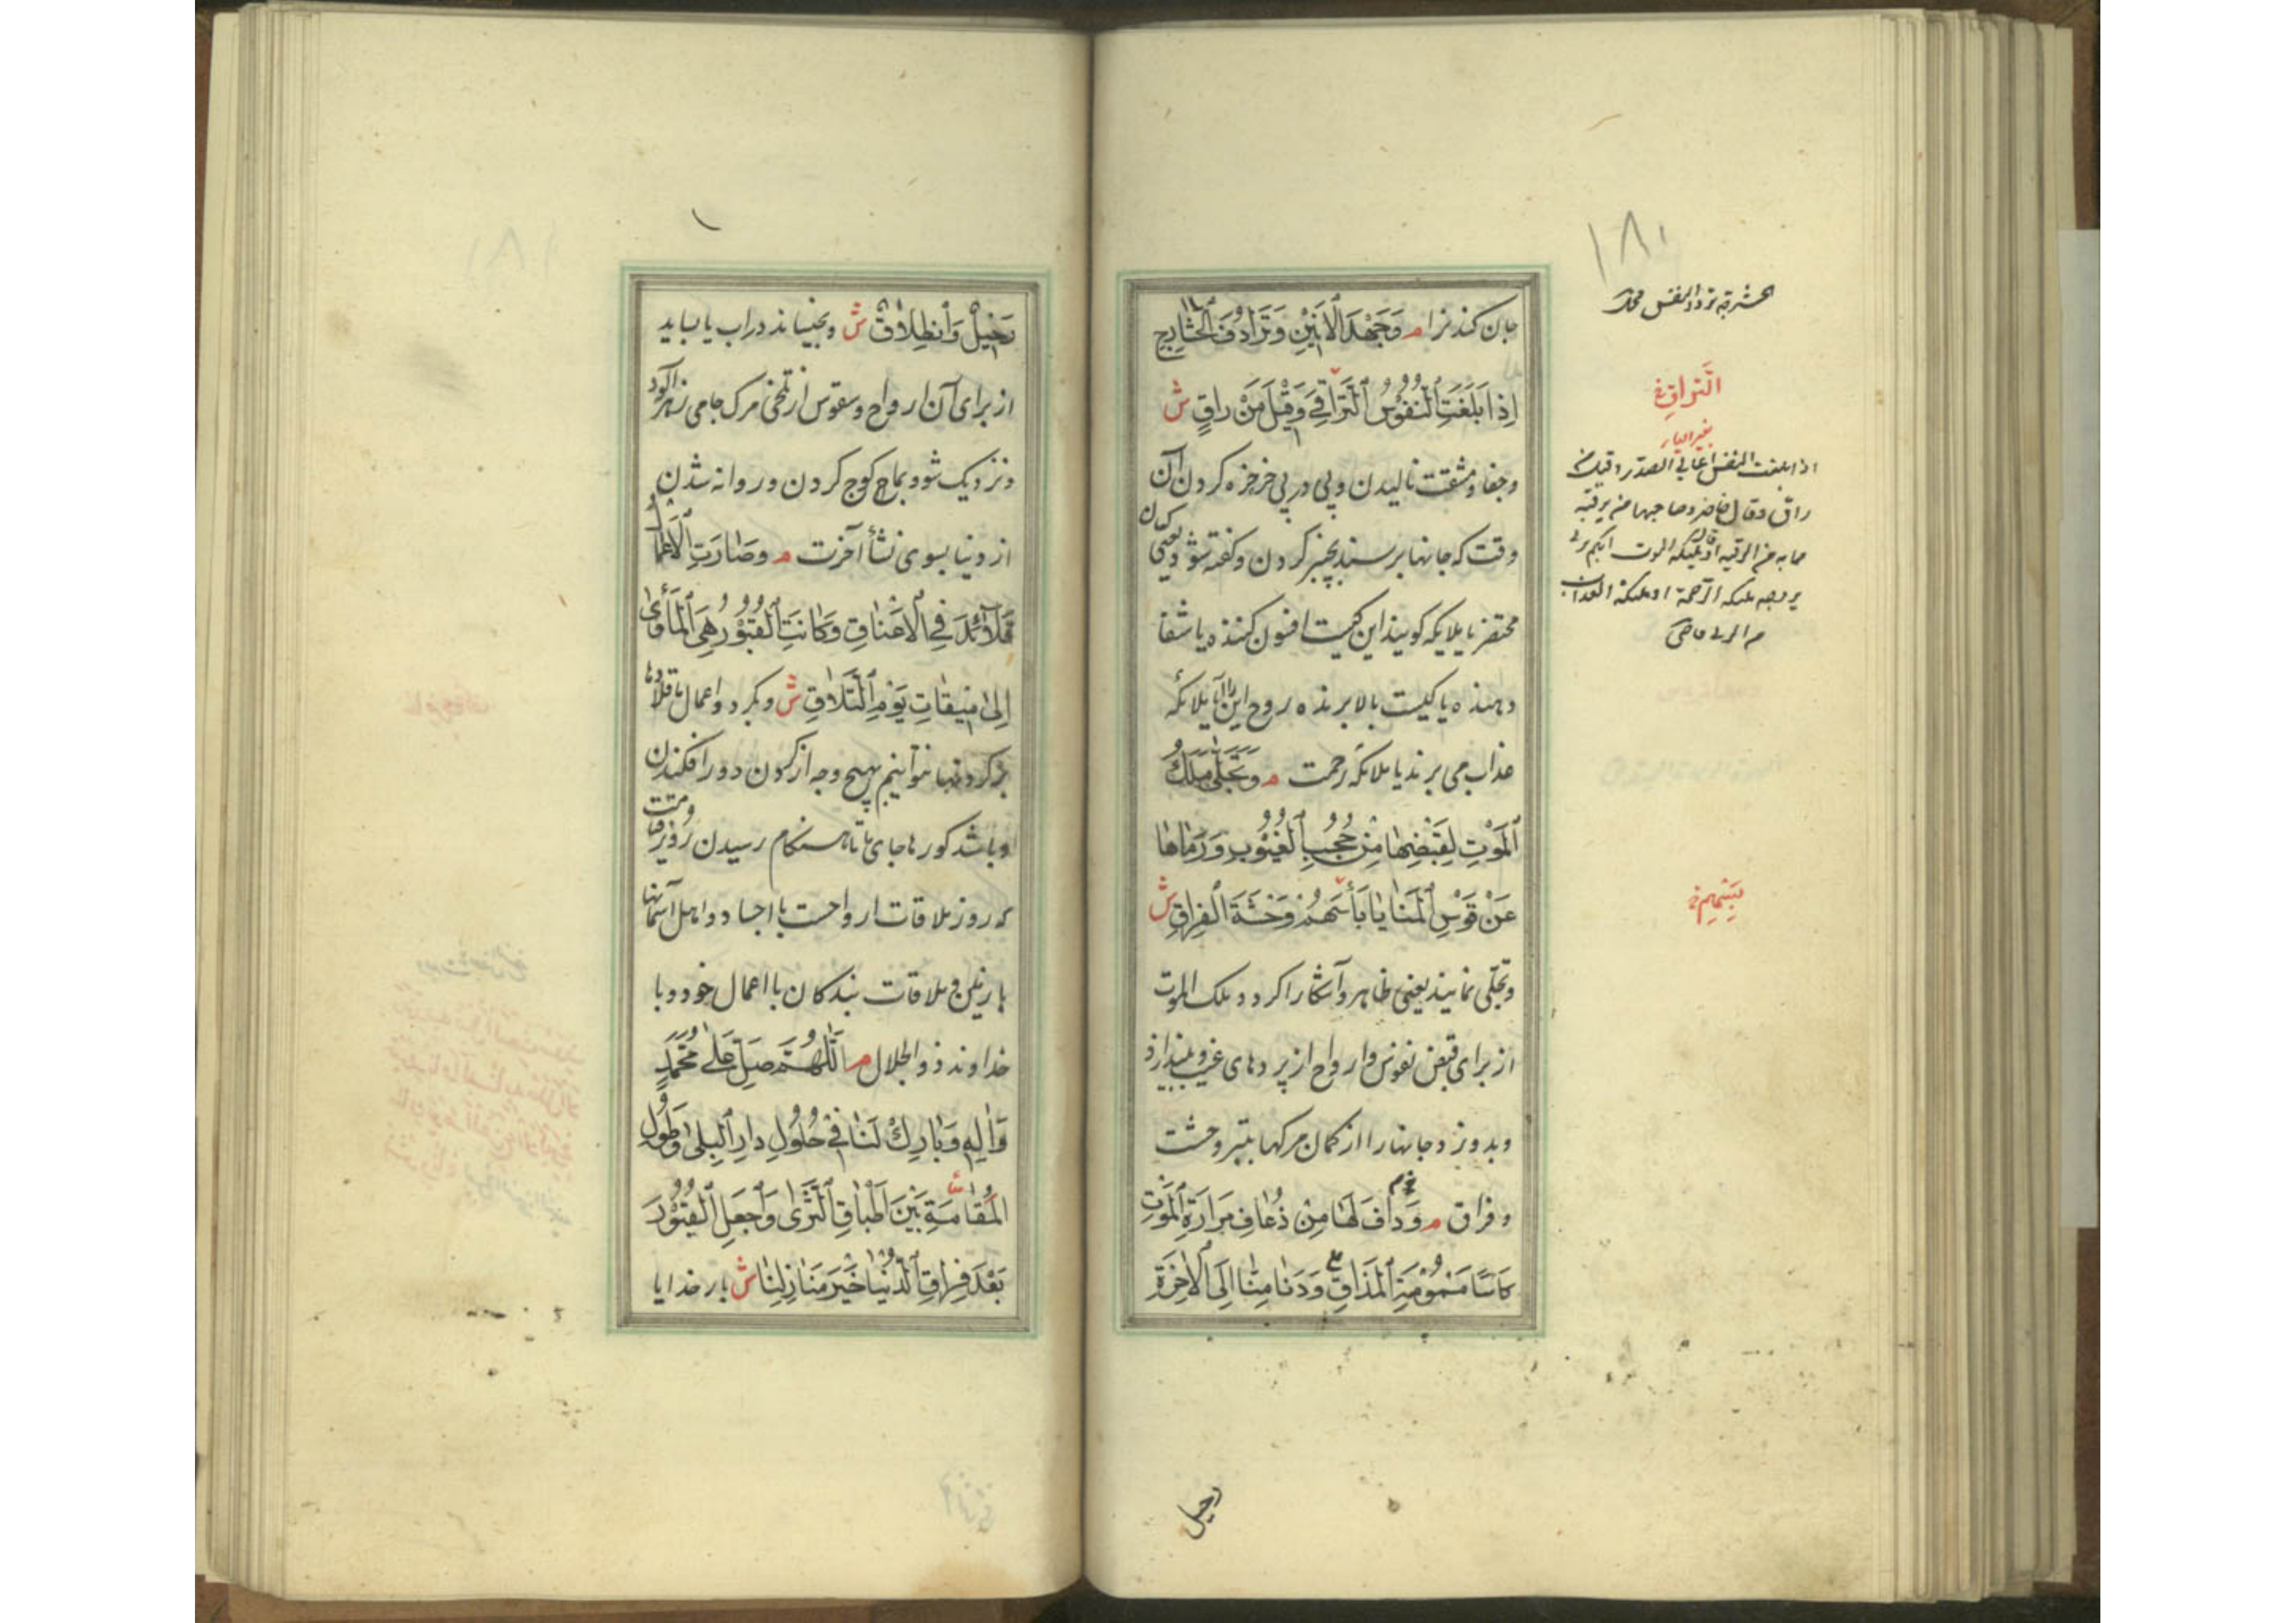 ۱۸۱
الحشرجة تردد النفس
جان کندنرا م وَجَهْدَ الْأَنِينِ وَتَرَادُفَ الْحَشَارِجِ
إِذَا بَلَغَتِ النُّفُوسُ التَّرَاقِيَ وَقِيلَ مَنْ رَاقٍ ش
وجفا ومشقت نالیدن وپی در پی خرخره کردن آن
وقت که جانها برسند بچنبر کردن وکفته شود یعنی کسان
محتضر یا ملایکه کویند این کیست افسون کننده یا شفا
دهنده یا کیست بالا برنده روح این را آیا ملائکه
عذاب می برند یا ملائکه رحمت م وَتَجَلَّىٰ مَلَكُ
الْمَوْتِ لِقَبْضِهَا مِنْ حُجُبِ الْغُيُوبِ وَرَمَاهَا
عَنْ قَوْسِ الْمَنَايَا بِأَسْهُمِ وَحْشَةِ الْفِرَاقِ ش
وتجلّی نماید یعنی ظاهر وآشکارا کردد ملک الموت
از برای قبض نفوس وارواح از پردهای غیوب بیندازد
وبدوزد جانها را از کمان مرکها بتیر وحشت
وفراق م وَدَافَ لَهَا مِنْ ذُعَافِ مَرَارَةِ الْمَوْتِ
كَأْسًا مَسْمُومَةَ الْمَذَاقِ وَدَنَا مِنَّا إِلَى الْآخِرَةِ
التَّراقِ
بغیر الیاء
اذا بلغت النفس اعالی الصدر وقیل من
راق وقال حاضروا صاحبها من یرقیه
مما به من الرقیه او قال ملیکة الموت ایکم یرقی
بروحه ملیکة الرحمة او ملیکة العذاب
رحیل
رَحِيلٌ وَانْطِلَاقٌ ش وبخیساند در آب یا بساید
از برای آن ارواح ونفوس از تلخی مرک جامی زهرآلود
ونزدیک شود بما کوچ کردن وروانه شدن
از دنیا بسوی نشأ آخرت م وَصَارَتِ الْأَعْمَالُ
قَلَائِدَ فِي الْأَعْنَاقِ وَكَانَتِ الْقُبُورُ هِيَ الْمَأْوَىٰ
إِلَىٰ مِيقَاتِ يَوْمِ التَّلَاقِ ش وبکردد اعمال ما قلادها
بر کردنها نتوانیم بهیچ وجه از کردن دور افکندن
وباشد کورها جای ما تا هنکام رسیدن روز میقات
که روز ملاقات ارواحست با اجساد واهل آسمانها
با زمین وملاقات بندکان با اعمال خود وبا
خداوند ذو الجلال م اللَّهُمَّ صَلِّ عَلَىٰ مُحَمَّدٍ
وَآلِهِ وَبَارِكْ لَنَا فِي حُلُولِ دَارِ الْبِلَىٰ وَطُولِ
الْمُقَامَةِ بَيْنَ أَطْبَاقِ الثَّرَىٰ وَاجْعَلِ الْقُبُورَ
بَعْدَ فِرَاقِ الدُّنْيَا خَيْرَ مَنَازِلِنَا ش بار خدایا